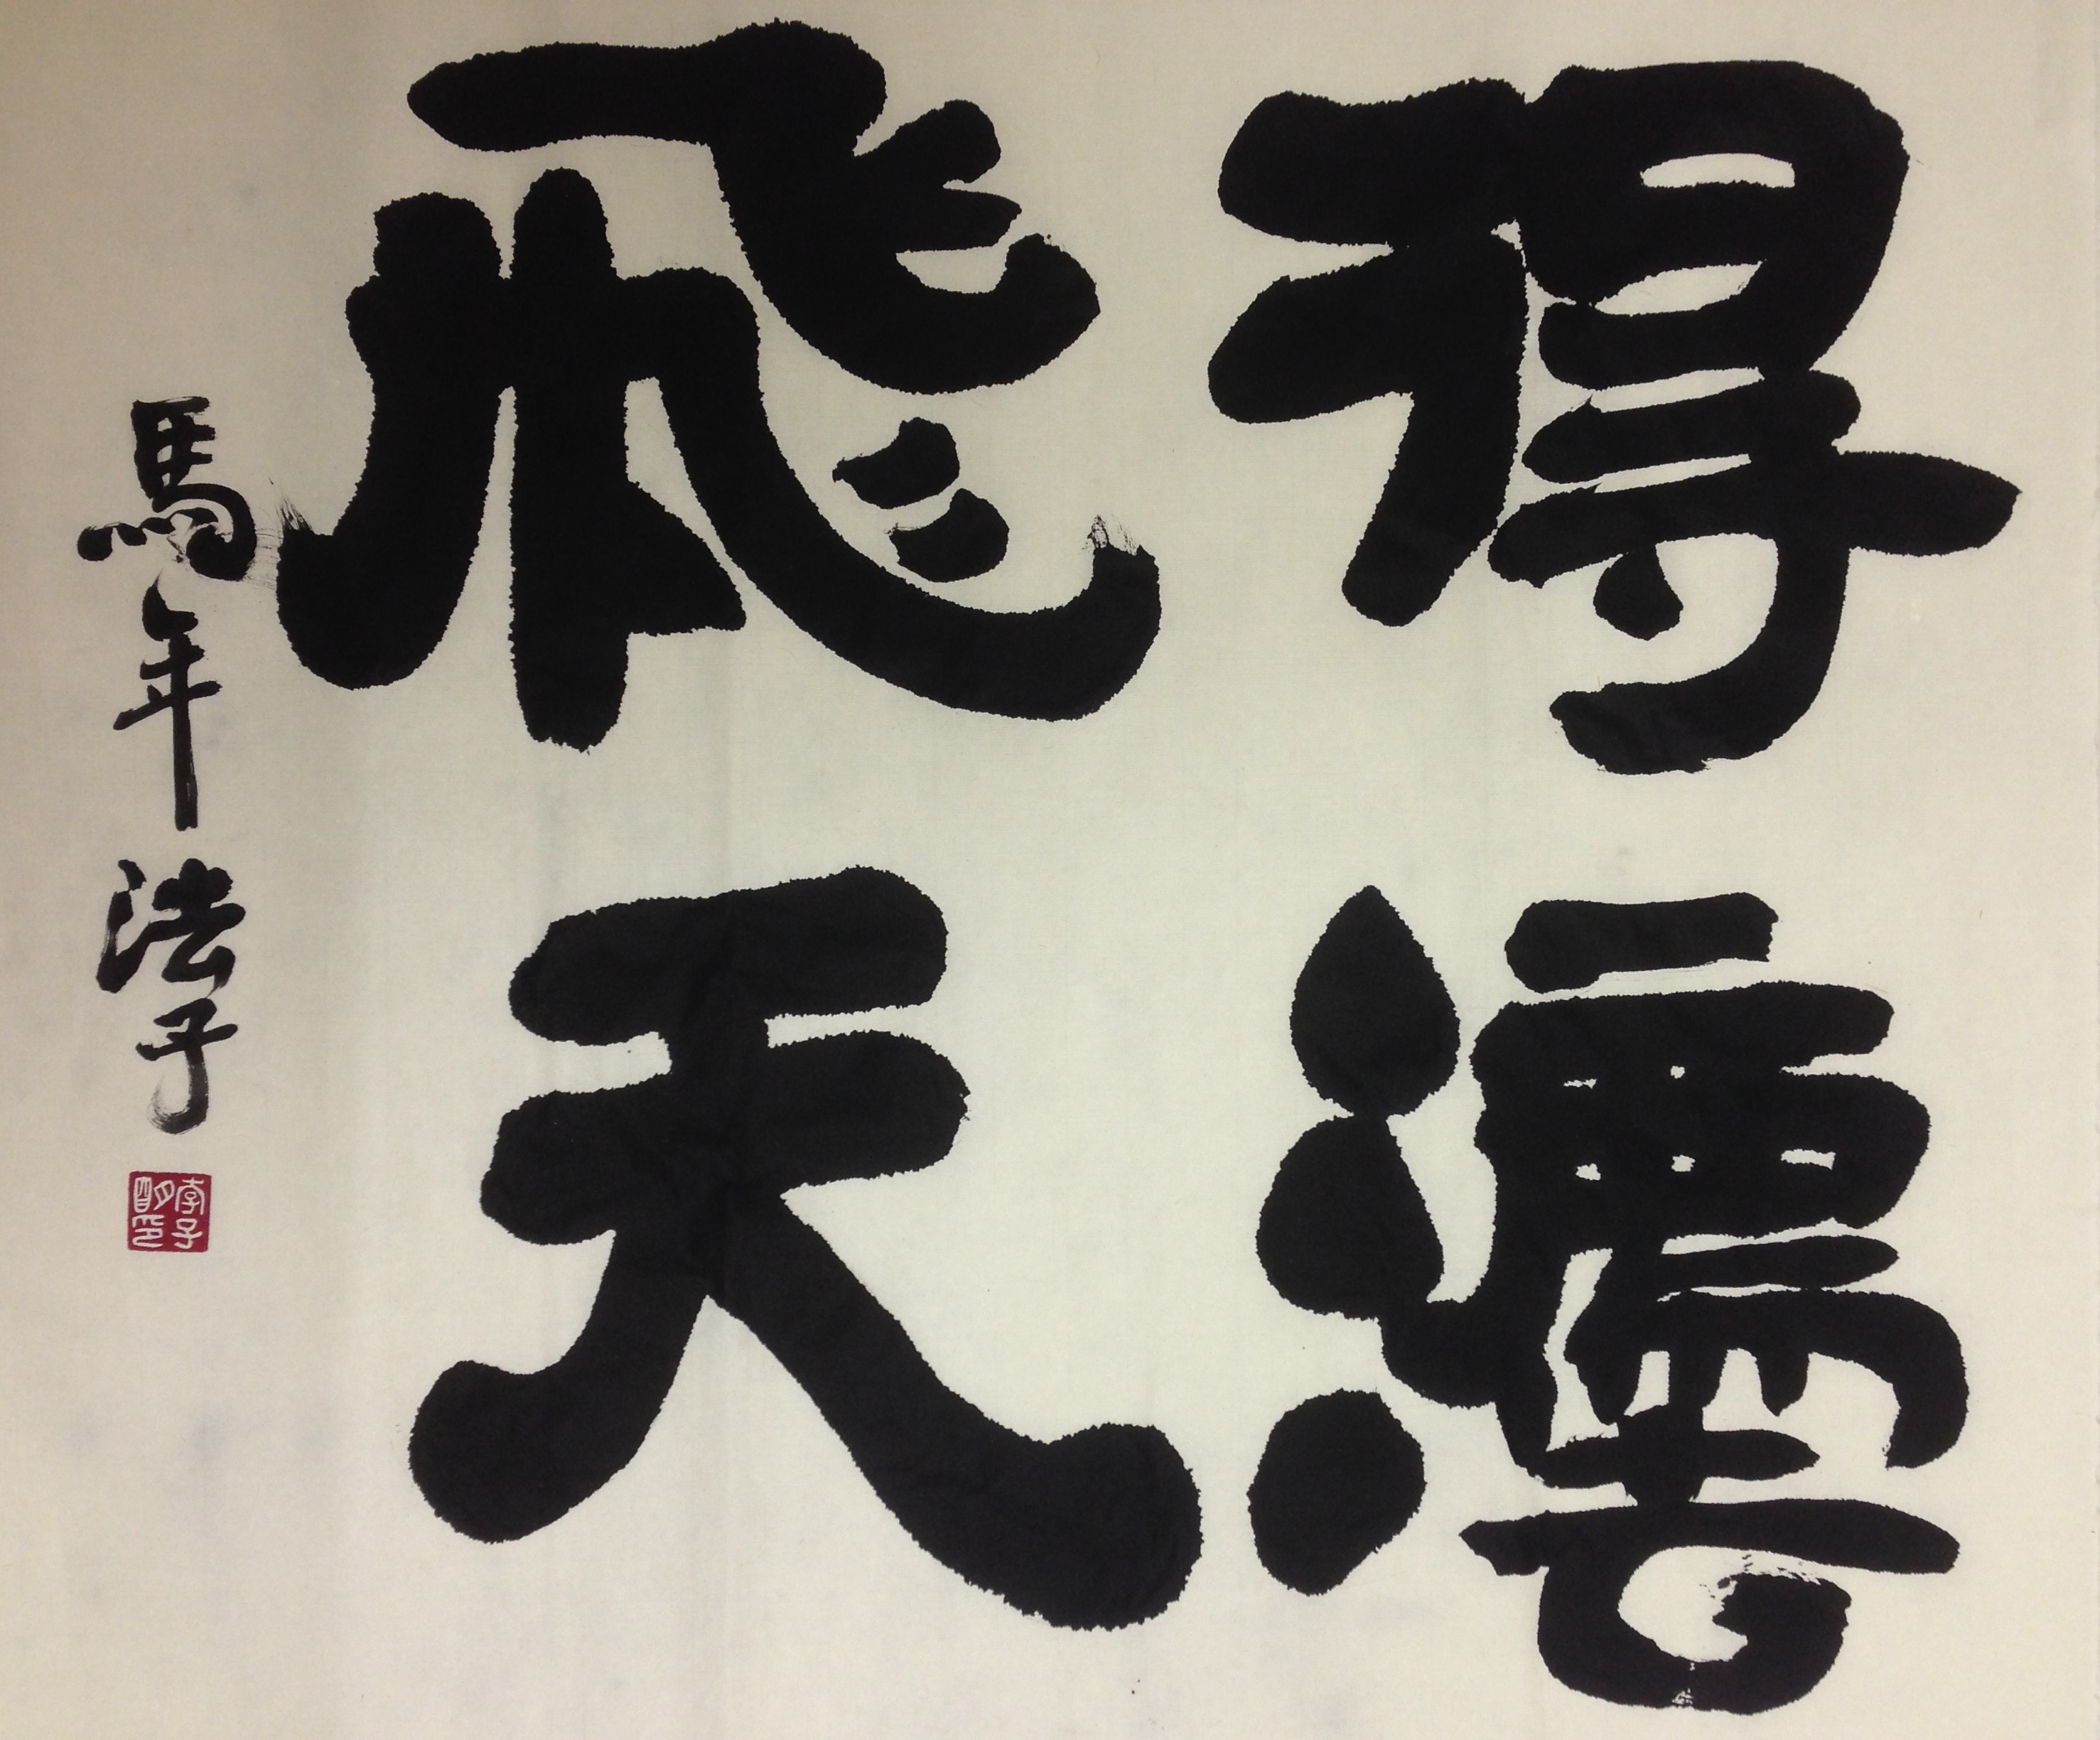 得灋
飛天
馬年法子